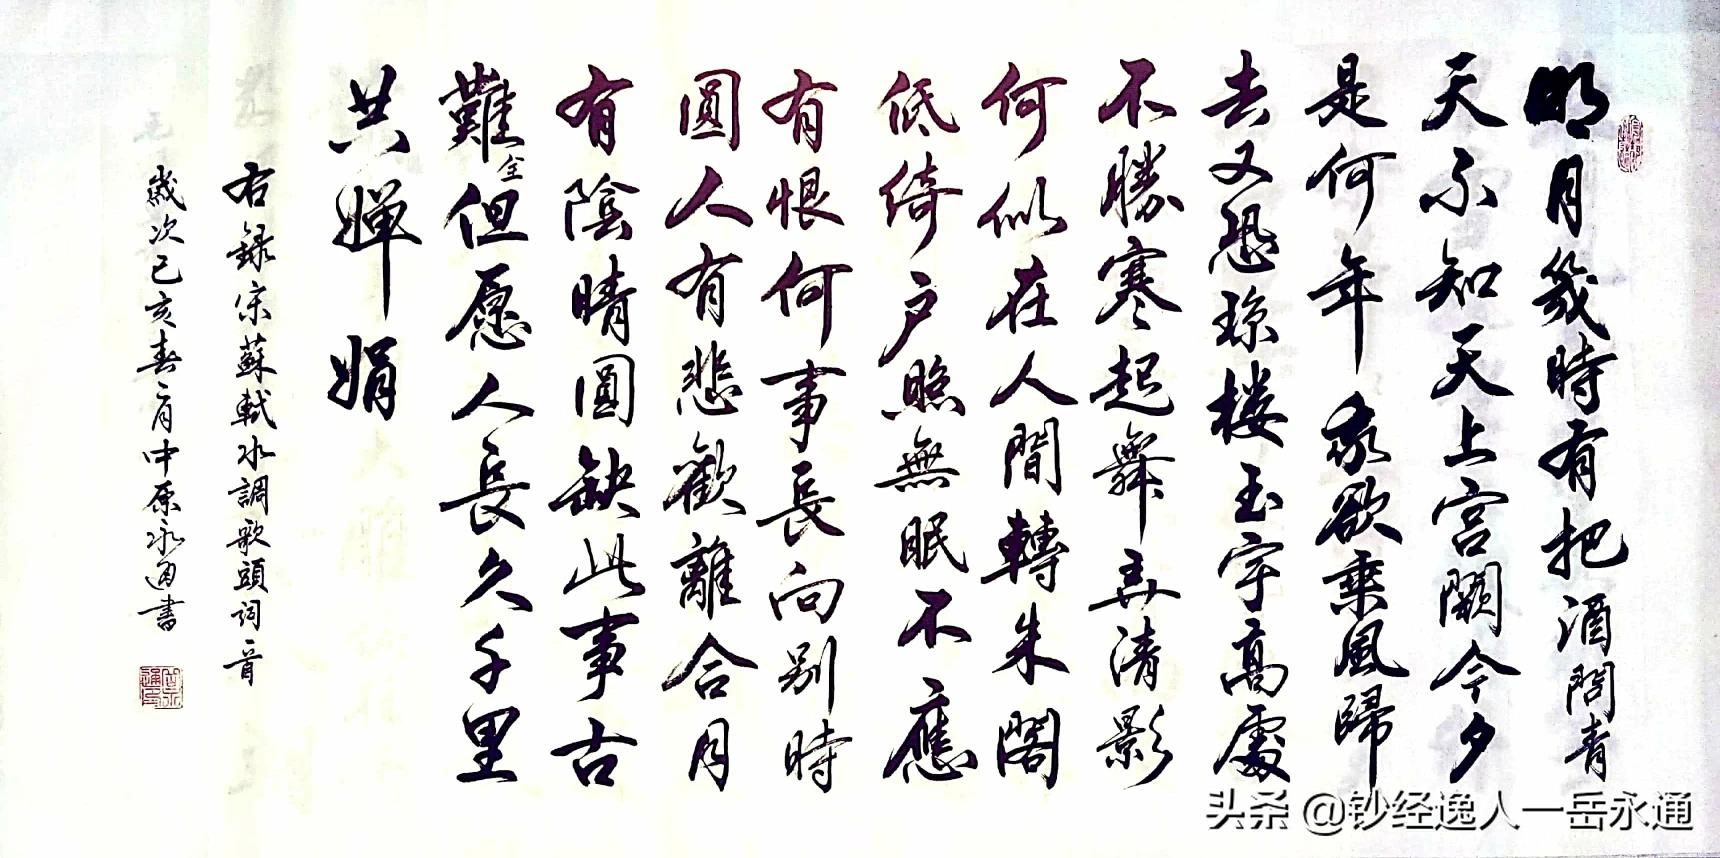 明月幾時有把酒問青
天不知天上宮闕今夕
是何年我欲乘風歸
去又恐琼楼玉宇高處
不勝寒起舞弄清影
何似在人間轉朱閣
低綺户照無眠不應
有恨何事長向别時
圓人有悲歡離合月
有陰晴圓缺此事古
難全但愿人長久千里
共嬋娟
右録宋蘇軾水調歌頭詞一首
歲次己亥春二月中原永通書
头条 @钞经逸人一岳永通